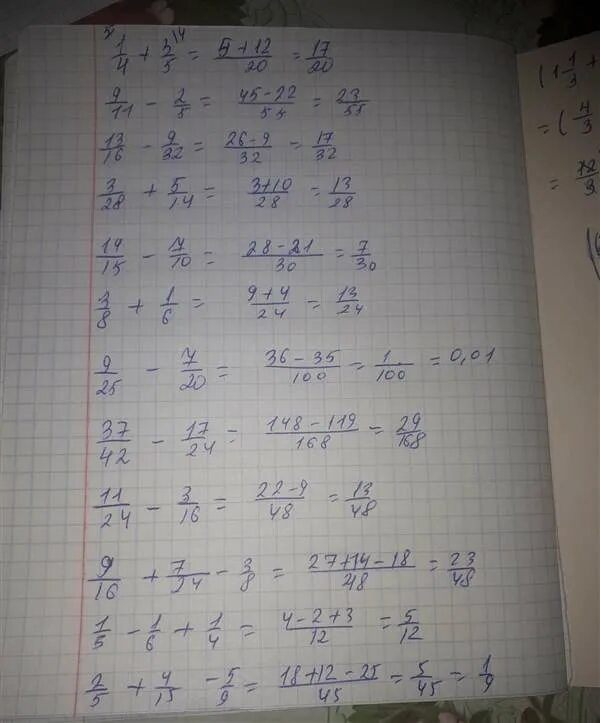 1/4 + 3/5 = 5+12/20 = 17/20
9/11 - 2/5 = 45-22/55 = 23/55
13/16 - 9/32 = 26-9/32 = 17/32
3/28 + 5/14 = 3+10/28 = 13/28
14/15 - 7/10 = 28-21/30 = 7/30
3/8 + 1/6 = 9+4/24 = 13/24
9/25 - 7/20 = 36-35/100 = 1/100 = 0,01
37/42 - 17/24 = 148-119/168 = 29/168
11/24 - 3/16 = 22-9/48 = 13/48
9/16 + 7/24 - 3/8 = 27+14-18/48 = 23/48
1/5 - 1/6 + 1/4 = 4-2+3/12 = 5/12
2/5 + 4/15 - 5/9 = 18+12-25/45 = 5/45 = 1/9
(1 1/3 +
= (4/3